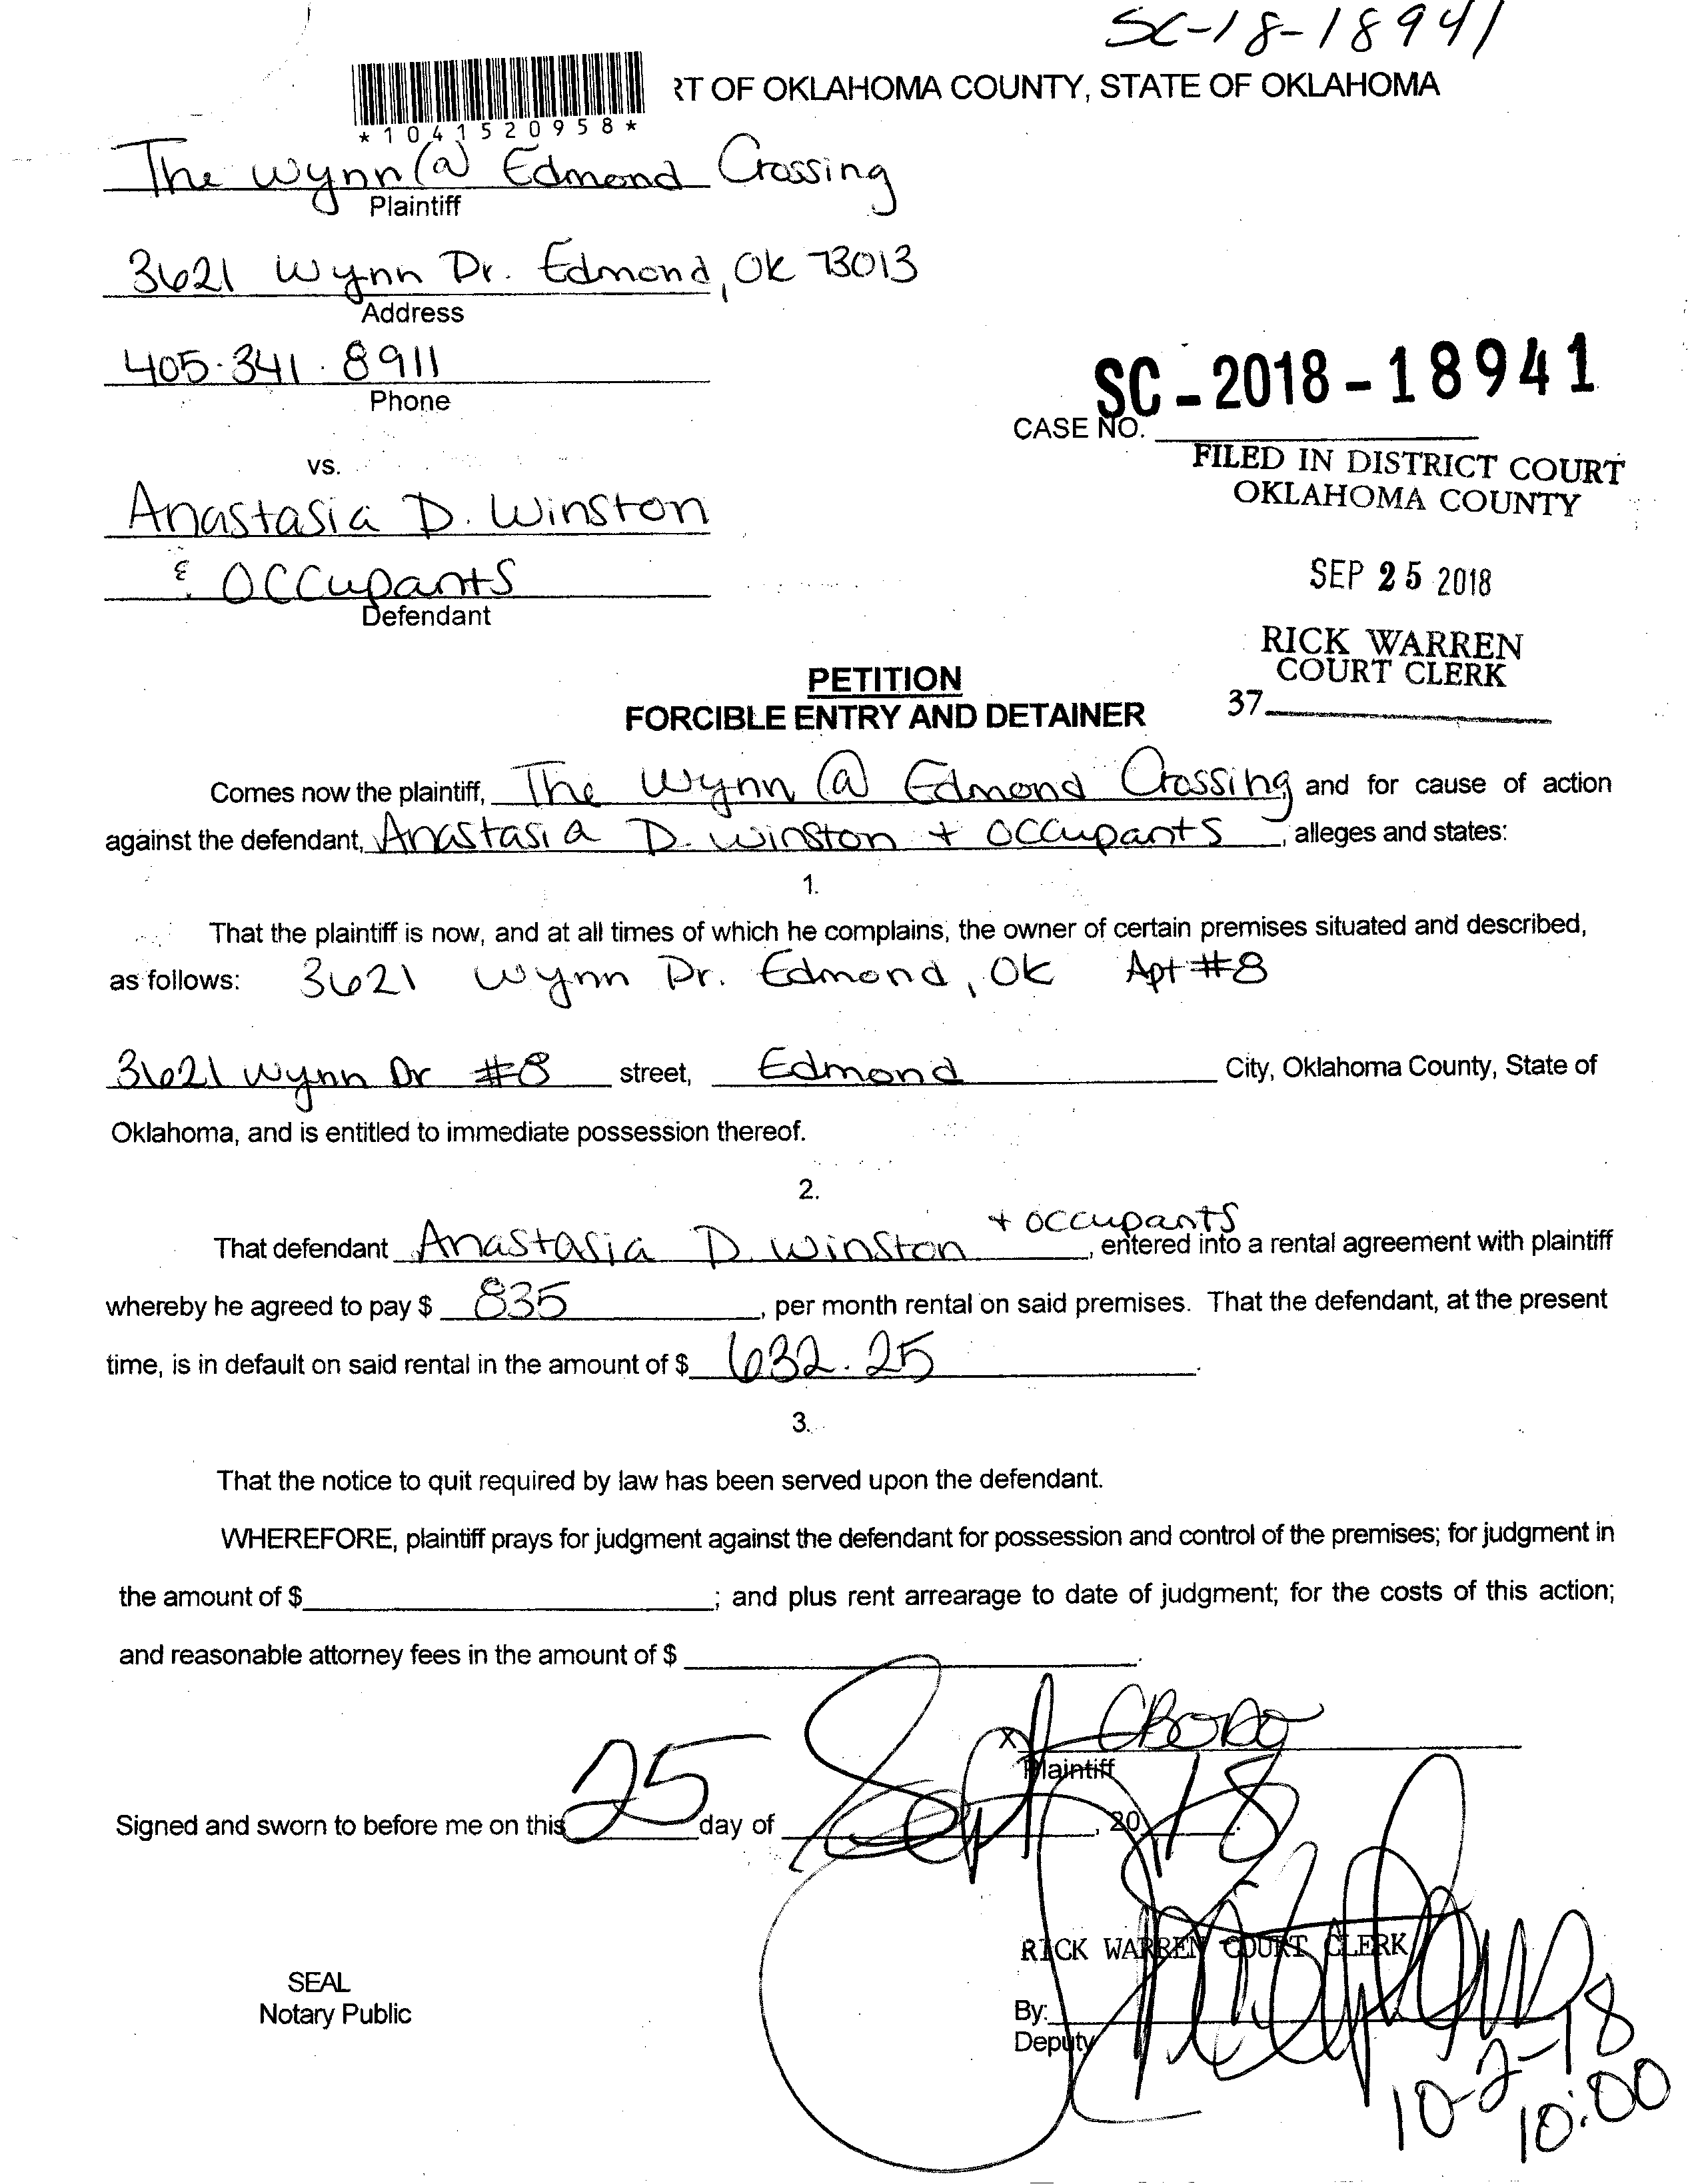 SC-18-18941
RT OF OKLAHOMA COUNTY, STATE OF OKLAHOMA
*1041520958*
The Wynn @ Edmond Crossing
Plaintiff
3621 Wynn Dr. Edmond, OK 73013
Address
405.341.8911
Phone
SC-2018-18941
CASE NO.
FILED IN DISTRICT COURT
OKLAHOMA COUNTY
vs.
Anastasia D. Winston
& Occupants
Defendant
SEP 25 2018
RICK WARREN
COURT CLERK
37
PETITION
FORCIBLE ENTRY AND DETAINER
Comes now the plaintiff, The Wynn @ Edmond Crossing and for cause of action
against the defendant, Anastasia D. Winston + Occupants, alleges and states:
1.
That the plaintiff is now, and at all times of which he complains, the owner of certain premises situated and described,
as follows: 3621 Wynn Dr. Edmond, OK Apt #8
3621 Wynn Dr #8 street, Edmond City, Oklahoma County, State of
Oklahoma, and is entitled to immediate possession thereof.
2.
That defendant Anastasia D. Winston + occupants, entered into a rental agreement with plaintiff
whereby he agreed to pay $ 835, per month rental on said premises. That the defendant, at the present
time, is in default on said rental in the amount of $ 632.25.
3.
That the notice to quit required by law has been served upon the defendant.
WHEREFORE, plaintiff prays for judgment against the defendant for possession and control of the premises; for judgment in
the amount of $ ; and plus rent arrearage to date of judgment; for the costs of this action;
and reasonable attorney fees in the amount of $ .
X
Plaintiff
Signed and sworn to before me on this 25 day of Sept, 20 18.
RICK WARREN COURT CLERK
SEAL
Notary Public
By:
Deputy
10-2-18
10:00